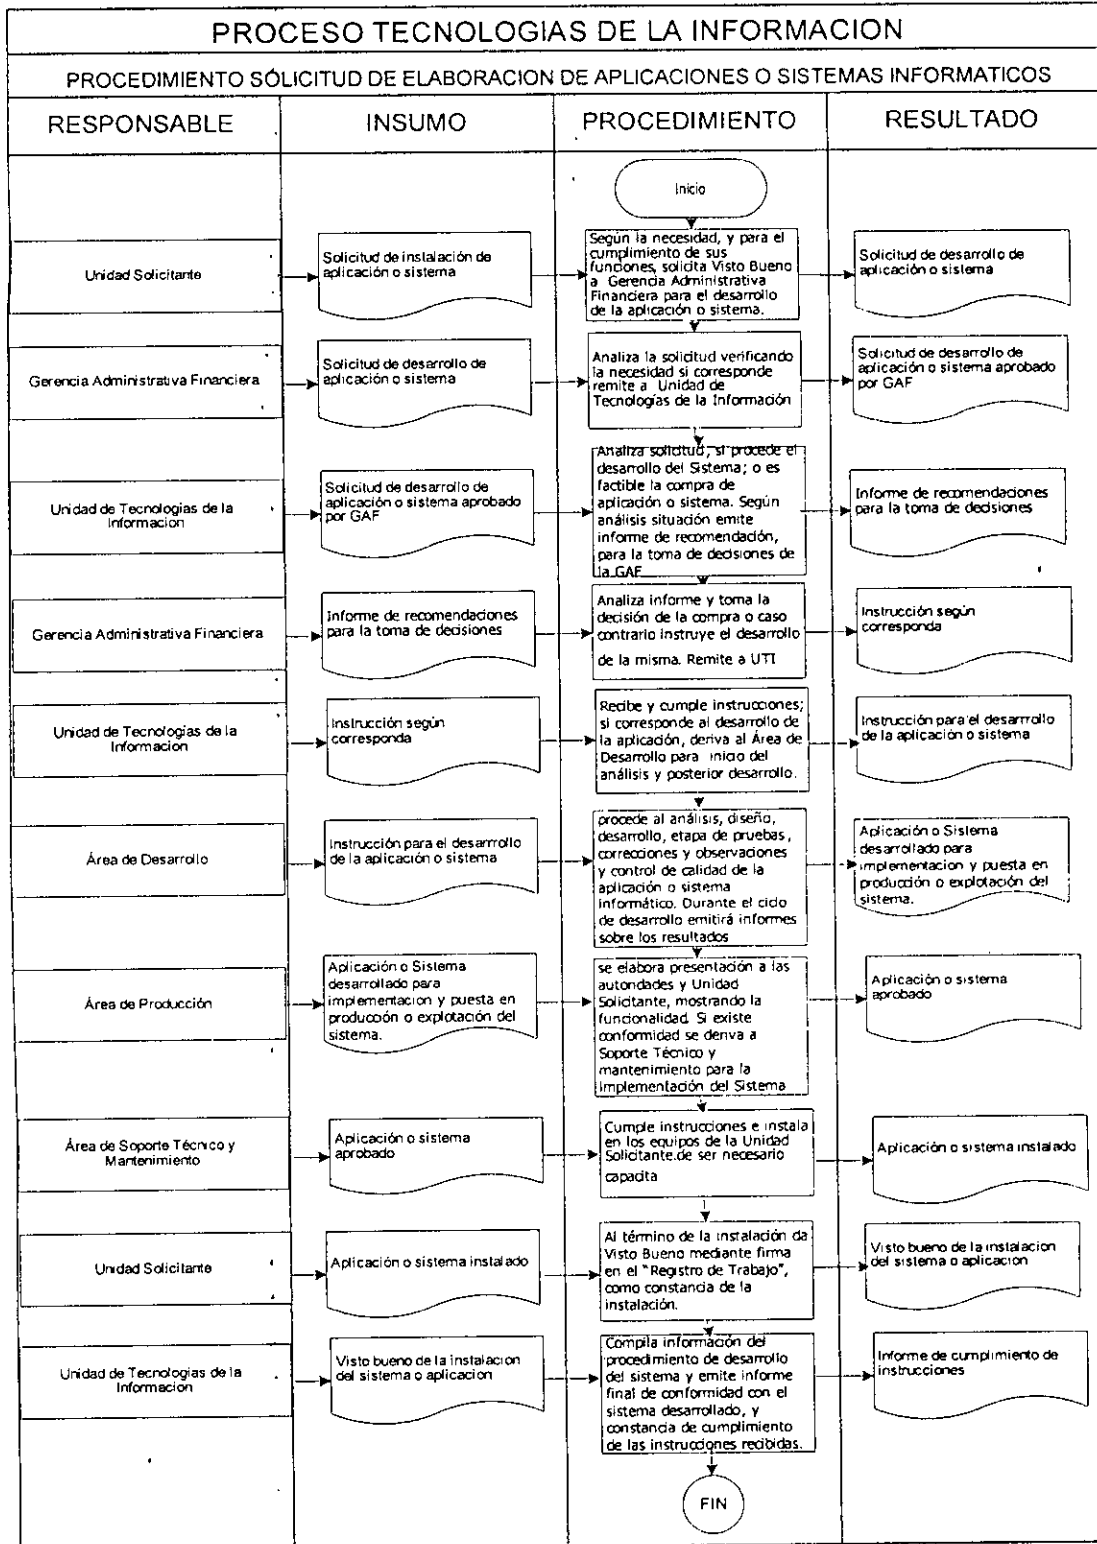 PROCESO TECNOLOGIAS DE LA INFORMACION
PROCEDIMIENTO SOLICITUD DE ELABORACION DE APLICACIONES O SISTEMAS INFORMATICOS
RESPONSABLE
INSUMO
PROCEDIMIENTO
RESULTADO
Inicio
Unidad Solicitante
Solicitud de instalación de
aplicación o sistema
Según la necesidad, y para el
cumplimiento de sus
funciones, solicita Visto Bueno
a Gerencia Administrativa
Financiera para el desarrollo
de la aplicación o sistema.
Solicitud de desarrollo de
aplicación o sistema
Gerencia Administrativa Financiera
Solicitud de desarrollo de
aplicación o sistema
Analiza la solicitud verificando
la necesidad si corresponde
remite a Unidad de
Tecnologías de la Información
Solicitud de desarrollo de
aplicación o sistema aprobado
por GAF
Unidad de Tecnologías de la
Informacion
Solicitud de desarrollo de
aplicación o sistema aprobado
por GAF
Analiza solicitud, si procede el
desarrollo del Sistema; o es
factible la compra de
aplicación o sistema. Según
análisis situación emite
informe de recomendación,
para la toma de decisiones de
la GAF
Informe de recomendaciones
para la toma de decisiones
Gerencia Administrativa Financiera
Informe de recomendaciones
para la toma de decisiones
Analiza informe y toma la
decisión de la compra o caso
contrario instruye el desarrollo
de la misma. Remite a UTI
Instrucción según
corresponda
Unidad de Tecnologías de la
Informacion
Instrucción según
corresponda
Recibe y cumple instrucciones;
si corresponde al desarrollo de
la aplicación, deriva al Área de
Desarrollo para inicio del
análisis y posterior desarrollo.
Instrucción para el desarrrollo
de la aplicación o sistema
Área de Desarrollo
Instrucción para el desarrrollo
de la aplicación o sistema
procede al análisis, diseño,
desarrollo, etapa de pruebas,
correcciones y observaciones
y control de calidad de la
aplicación o sistema
informático. Durante el ciclo
de desarrollo emitirá informes
sobre los resultados
Aplicación o Sistema
desarrollado para
implementacion y puesta en
producción o explotación del
sistema.
Área de Producción
Aplicación o Sistema
desarrollado para
implementacion y puesta en
producción o explotación del
sistema.
se elabora presentación a las
autoridades y Unidad
Solicitante, mostrando la
funcionalidad. Si existe
conformidad se deriva a
Soporte Técnico y
mantenimiento para la
Implementación del Sistema
Aplicación o sistema
aprobado
Área de Soporte Técnico y
Mantenimiento
Aplicación o sistema
aprobado
Cumple instrucciones e instala
en los equipos de la Unidad
Solicitante.de ser necesario
capacita
Aplicación o sistema instalado
Unidad Solicitante
Aplicación o sistema instalado
Al término de la instalación da
Visto Bueno mediante firma
en el "Registro de Trabajo",
como constancia de la
instalación.
Visto bueno de la instalacion
del sistema o aplicacion
Unidad de Tecnologías de la
Informacion
Visto bueno de la instalacion
del sistema o aplicacion
Compila información del
procedimiento de desarrollo
del sistema y emite informe
final de conformidad con el
sistema desarrollado, y
constancia de cumplimiento
de las instrucciones recibidas.
Informe de cumplimiento de
instrucciones
FIN